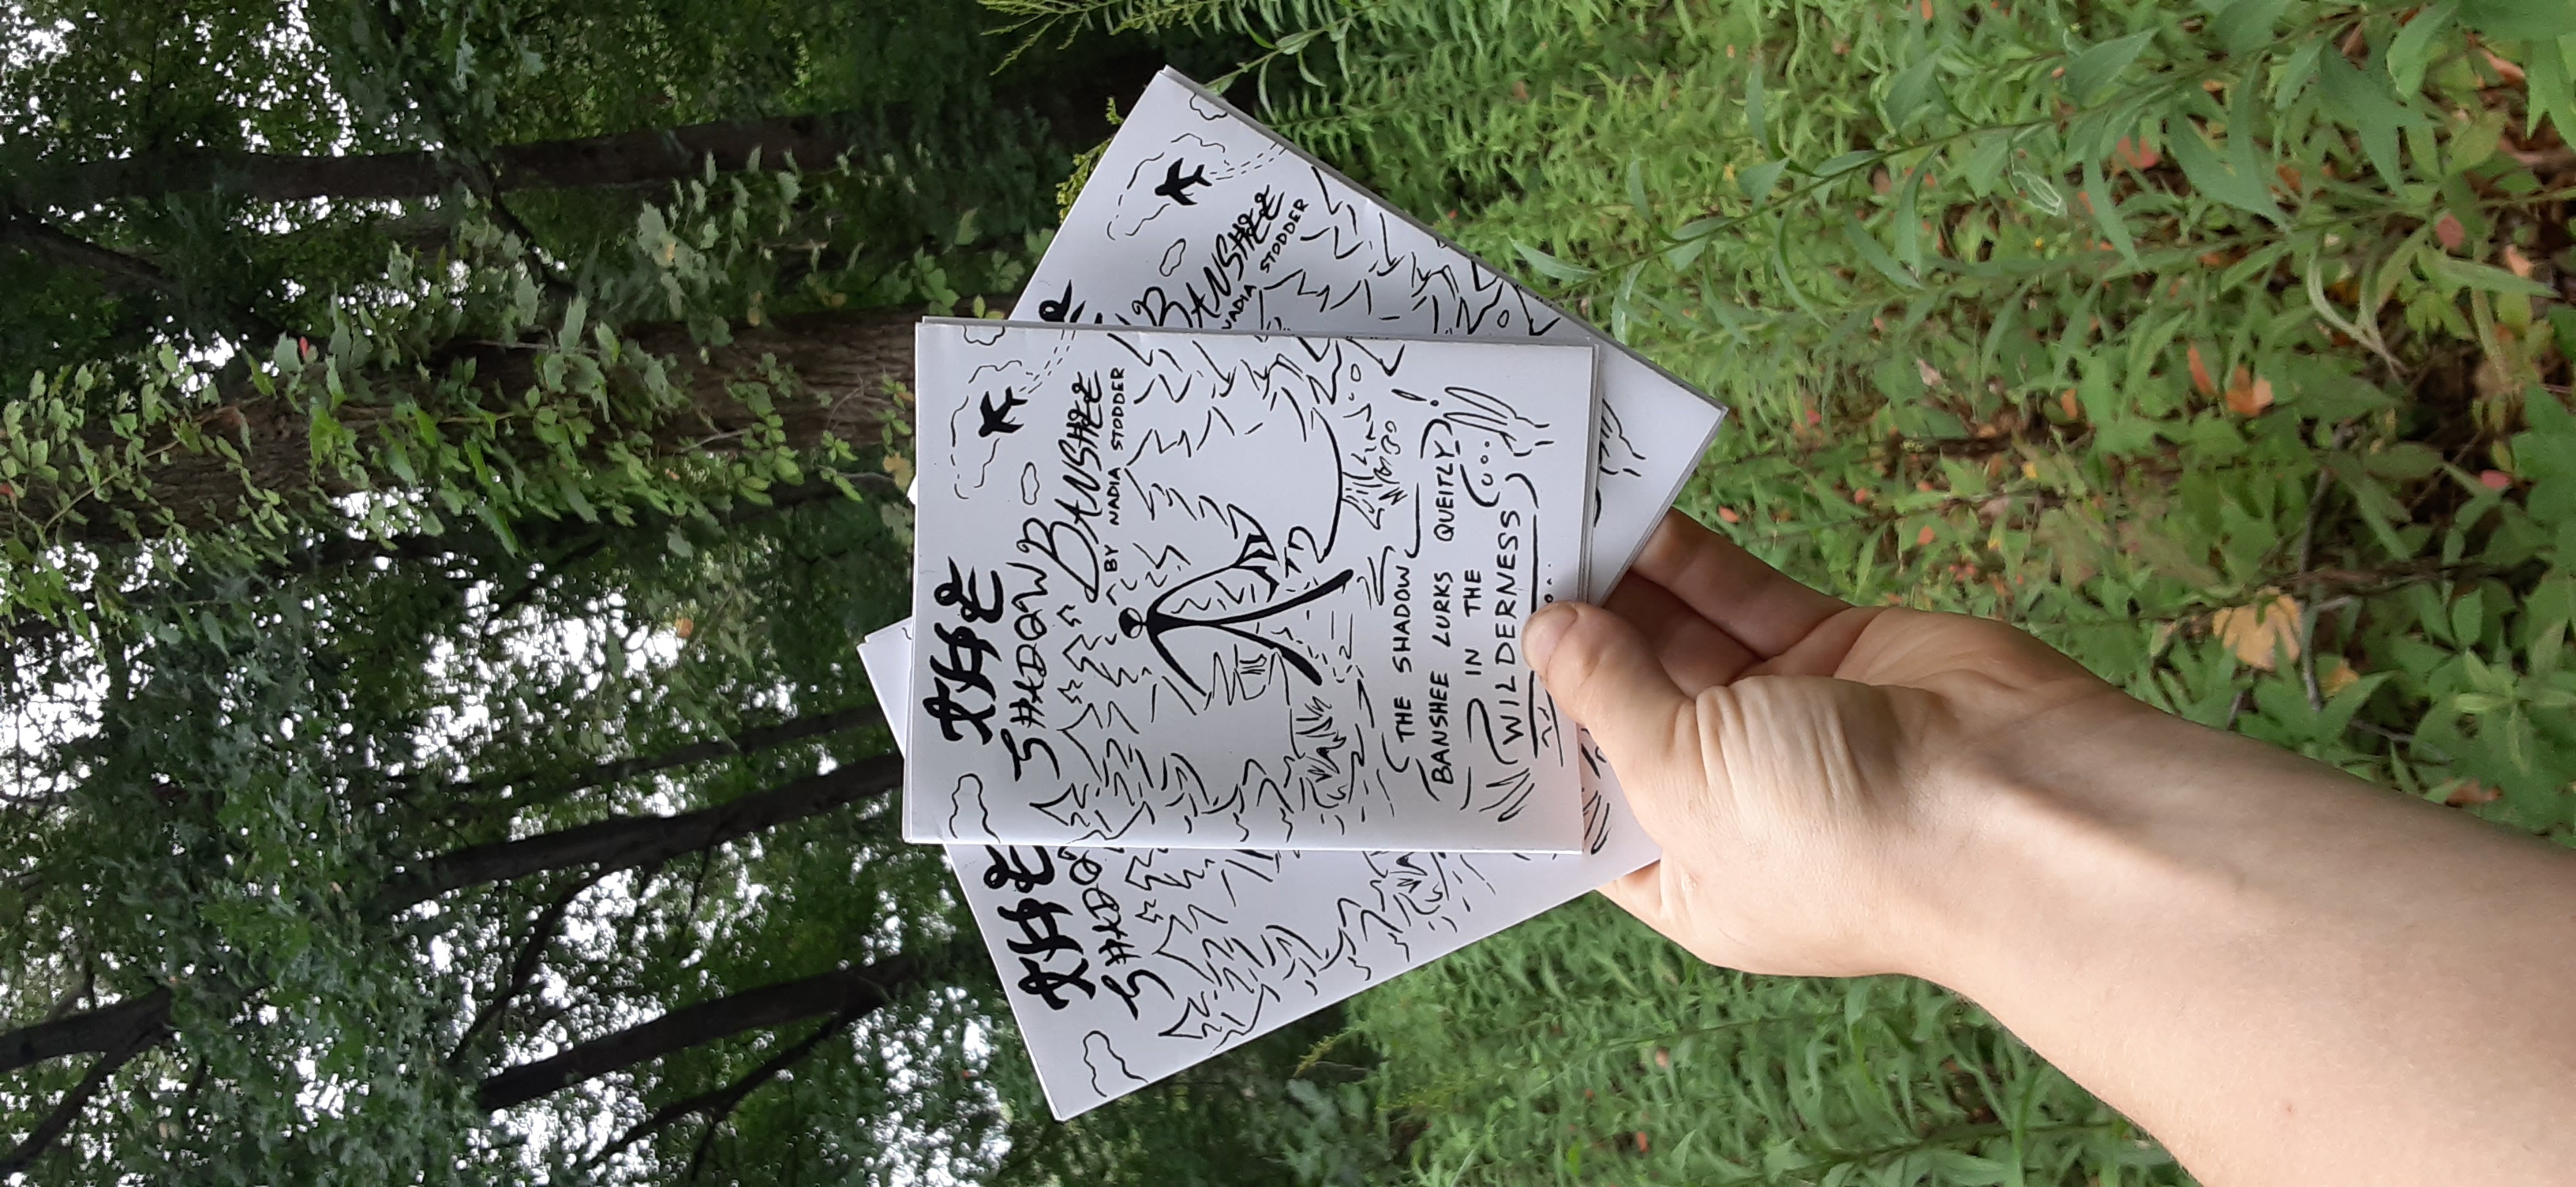 THE
SHADOW
BANSHEE
BY NADIA STODDER
THE SHADOW
BANSHEE LURKS QUEITLY
IN THE
WILDERNESS
THE
SHADOW
BANSHEE
NADIA STODDER